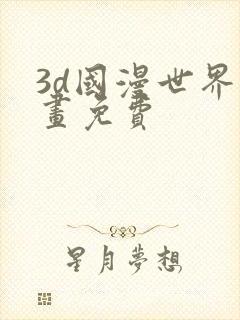 3d國漫世界
畫免費
星月夢想